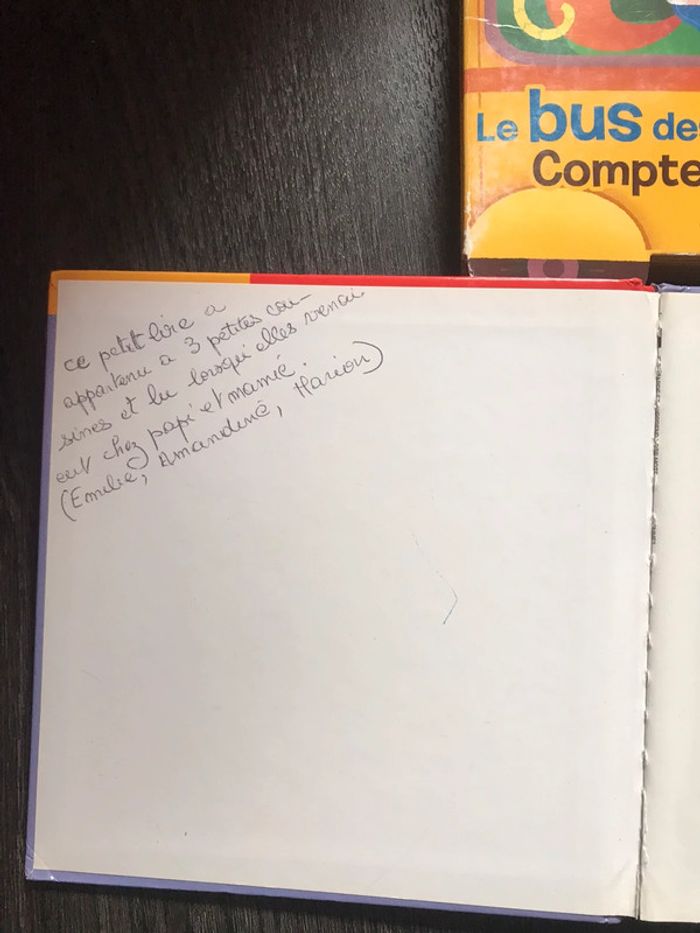 Le bus de
Compte
ce petit livre a
appartenu a 3 petites cou-
sines et lu lorsqu'elles venai
ent chez papi et mamie.
(Emilie, Amandine, Marion)